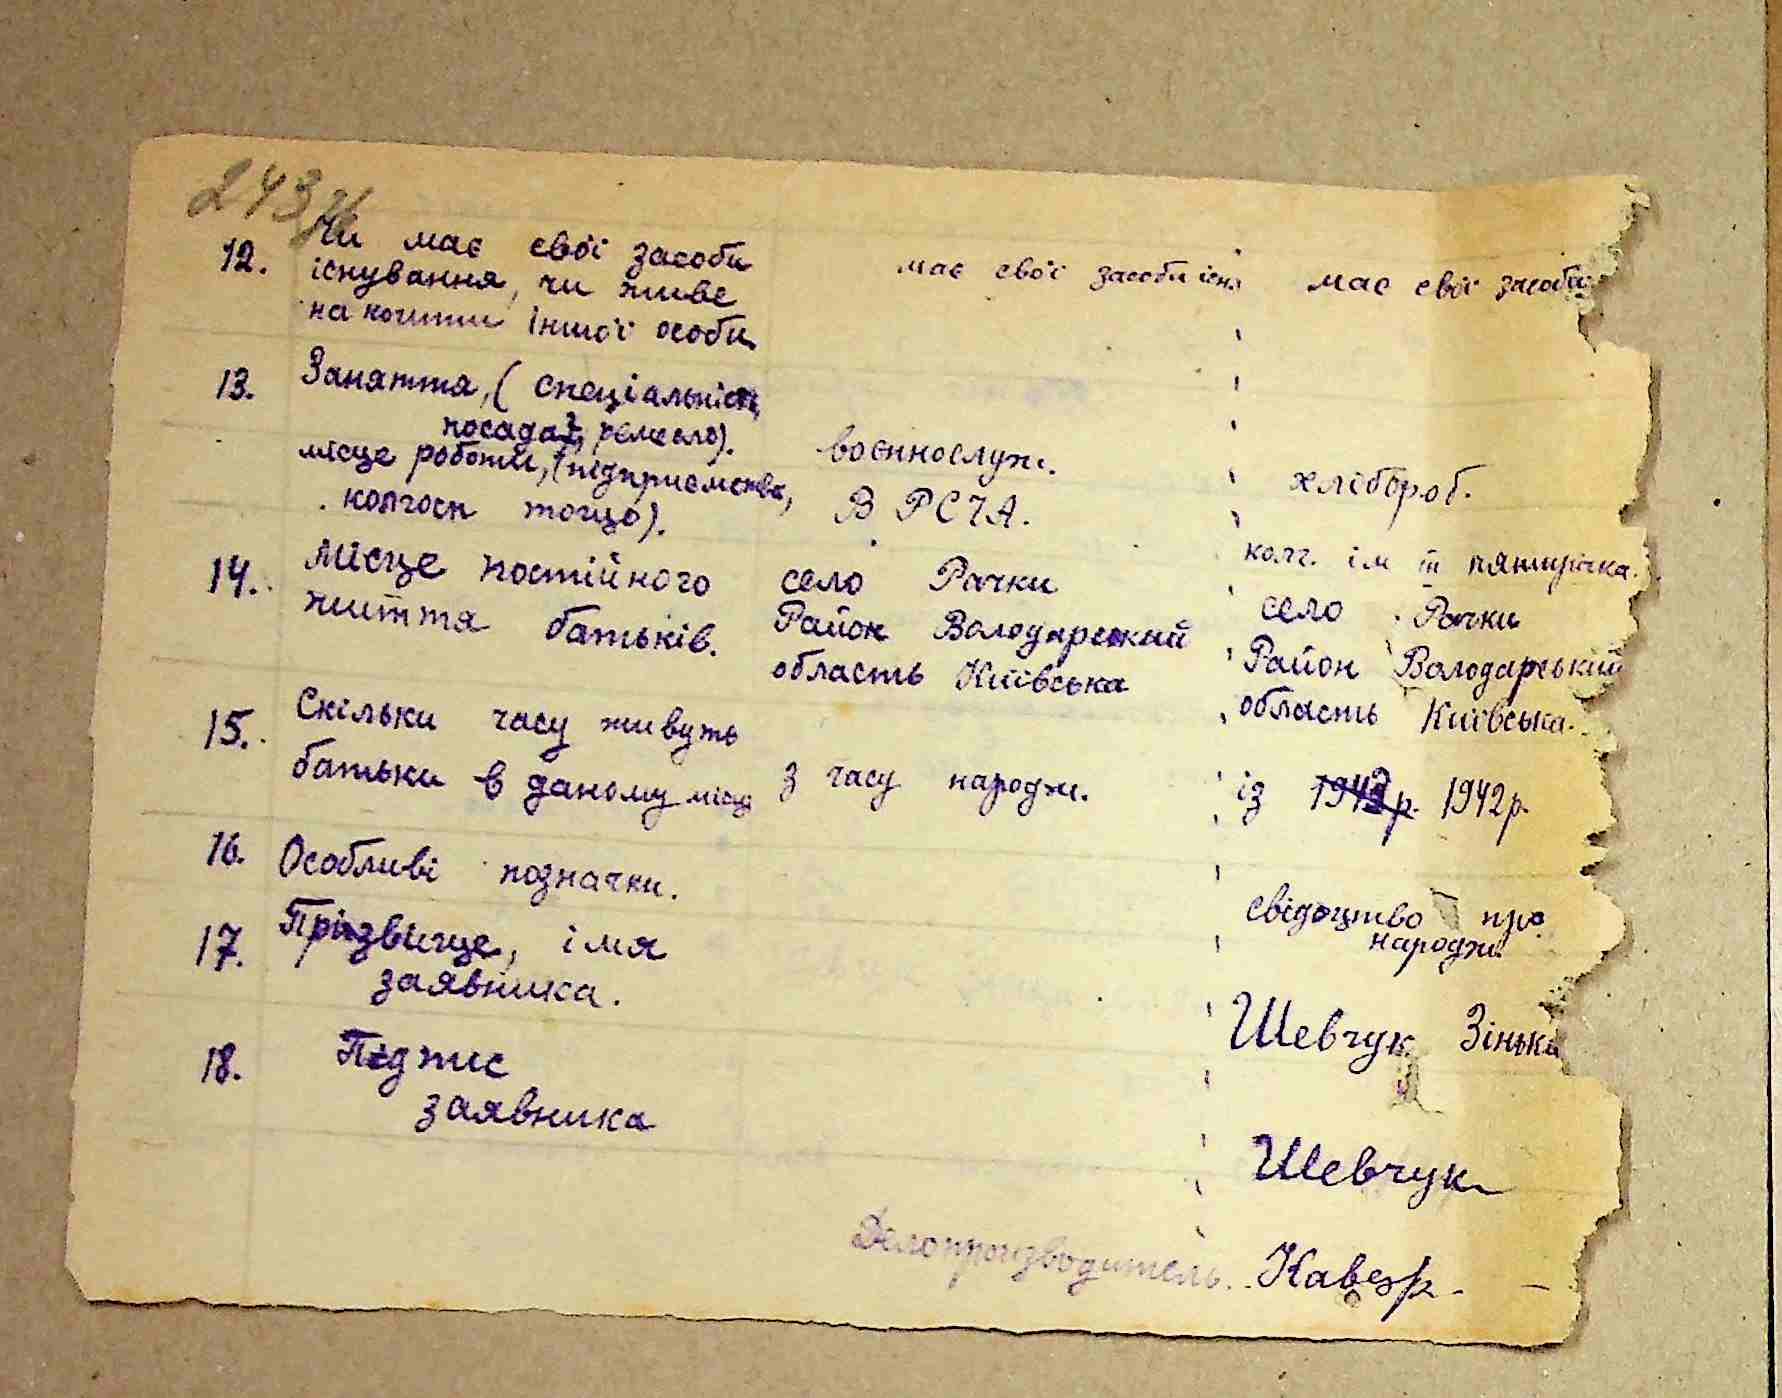 243
12. Чи має свої засоби
існування, чи живе
на кошти іншої особи.
має свої засоби існ.
має свої засоби
13. Заняття, (спеціальність,
посада, ремесло).
місце роботи, (підприємство,
колгосп тощо).
воєннослуж.
В РСЧА.
хлібороб.
колг. ім ІІІ пятирічка.
14. Місце постійного
життя батьків.
село Рачки
Район Володарський
область Київська
село Рачки
Район Володарський
область Київська.
15. Скільки часу живуть
батьки в даному місці
з часу народж.
із 1942р. 1942р.
16. Особливі позначки.
свідоцтво про
народж.
17. Прізвище, імя
заявника.
Шевчук Зінька
18. Підпис
заявника
Шевчук
Делопроизводитель.